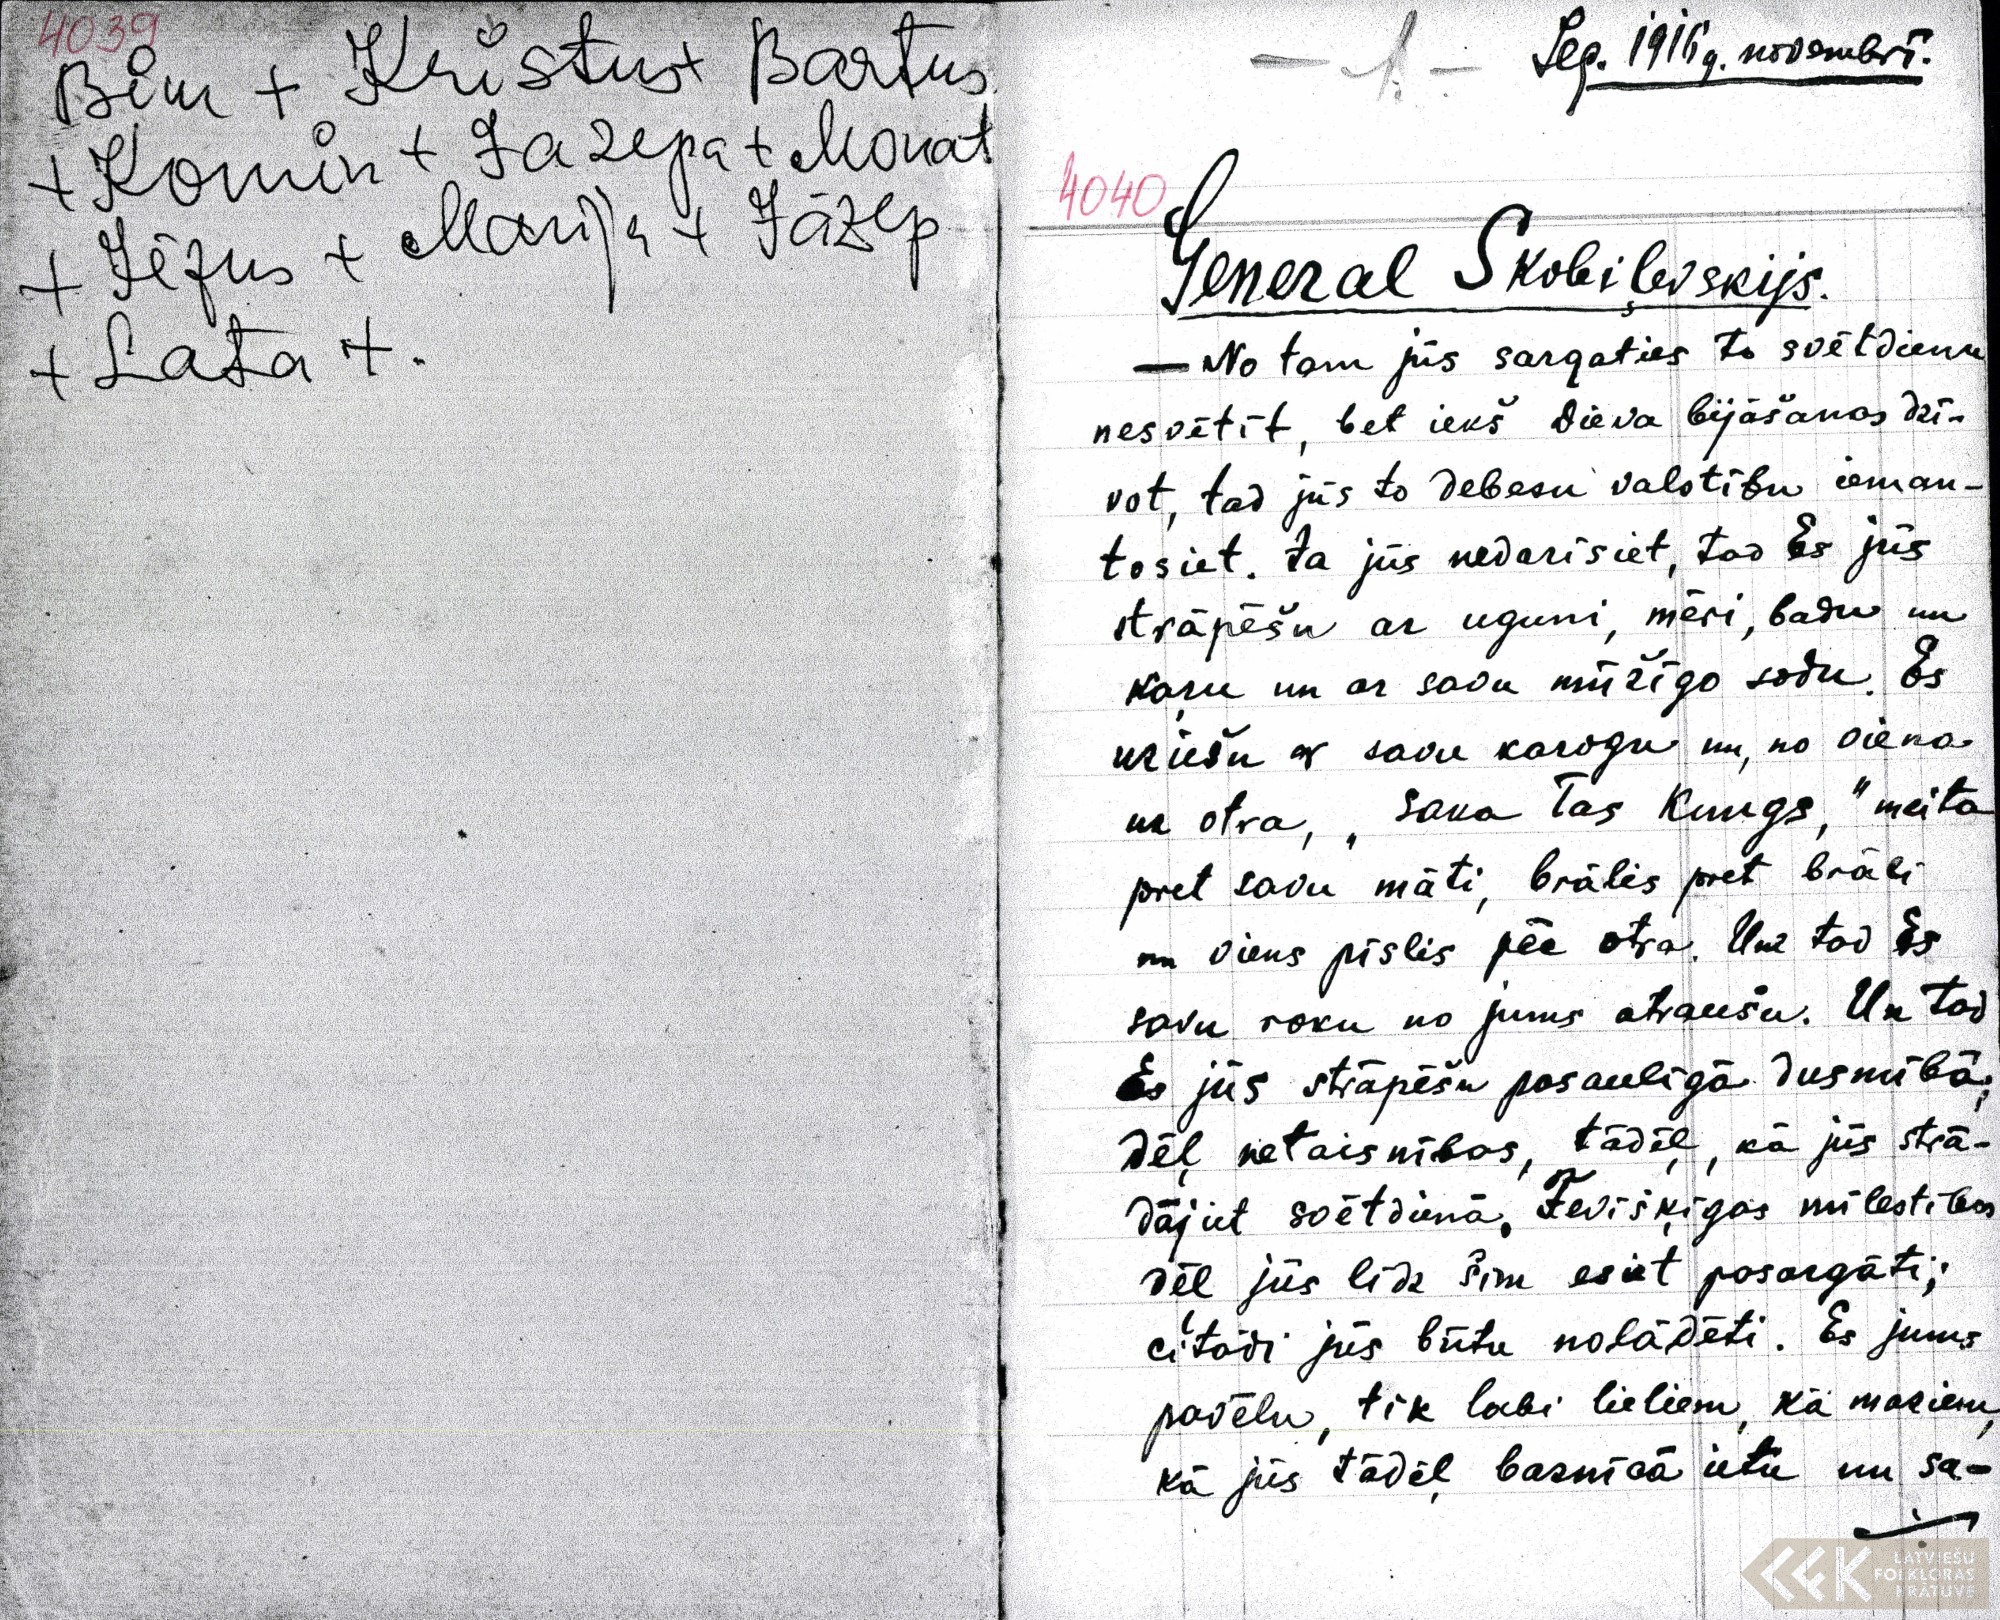 4039
Bim + Kristus + Bartus
+ Komin + Jazepa + Monat
+ Jēzus + Marija + Jāzep
+ Lata +.
— 1. —
Sep. 1915 g. novembrī.
4040
General Skobiļevskijs.
— No tam jūs sargaties to svētdienu
nesvētīt, bet iekš dieva bijāšanas dzī-
vot, tad jūs to debesu valstību ieman-
tosiet. Ja jūs nedarīsiet, tad Es jūs
strāpēšu ar uguni, mēri, badu un
kaŗu un ar savu mūžīgo sodu. Es
uziešu ar savu karogu un, no viena
uz otra, „saka Tas Kungs," meita
pret savu māti, brālis pret brāli
un viens pīslis pēc otra. Uz tad Es
savu roku no jums atraušu. Un tad
Es jūs strāpēšu pasauligā dusmībā;
dēļ netaisnības, tādēļ, kā jūs strā-
dājiet svētdienā. Tevišķigas mīlestības
dēl jūs līdz šim esiet pasargāti;
citādi jūs būtu nolādēti. Es jums
pavēlu, tik labi lieliem, kā maziem,
kā jūs tādēļ baznīcā ietu un sa-
LATVIEŠU
FOLKLORAS
KRĀTUVE